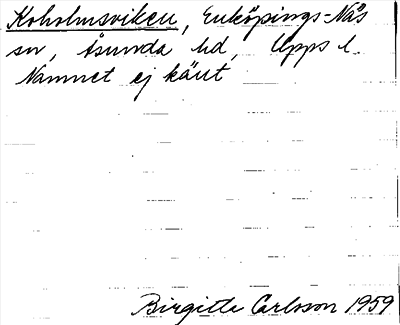 Koholmsviken, Enköpings-Näs
sn, Åsunda hd, Upps l.
Namnet ej känt
Birgitta Carlsson 1959